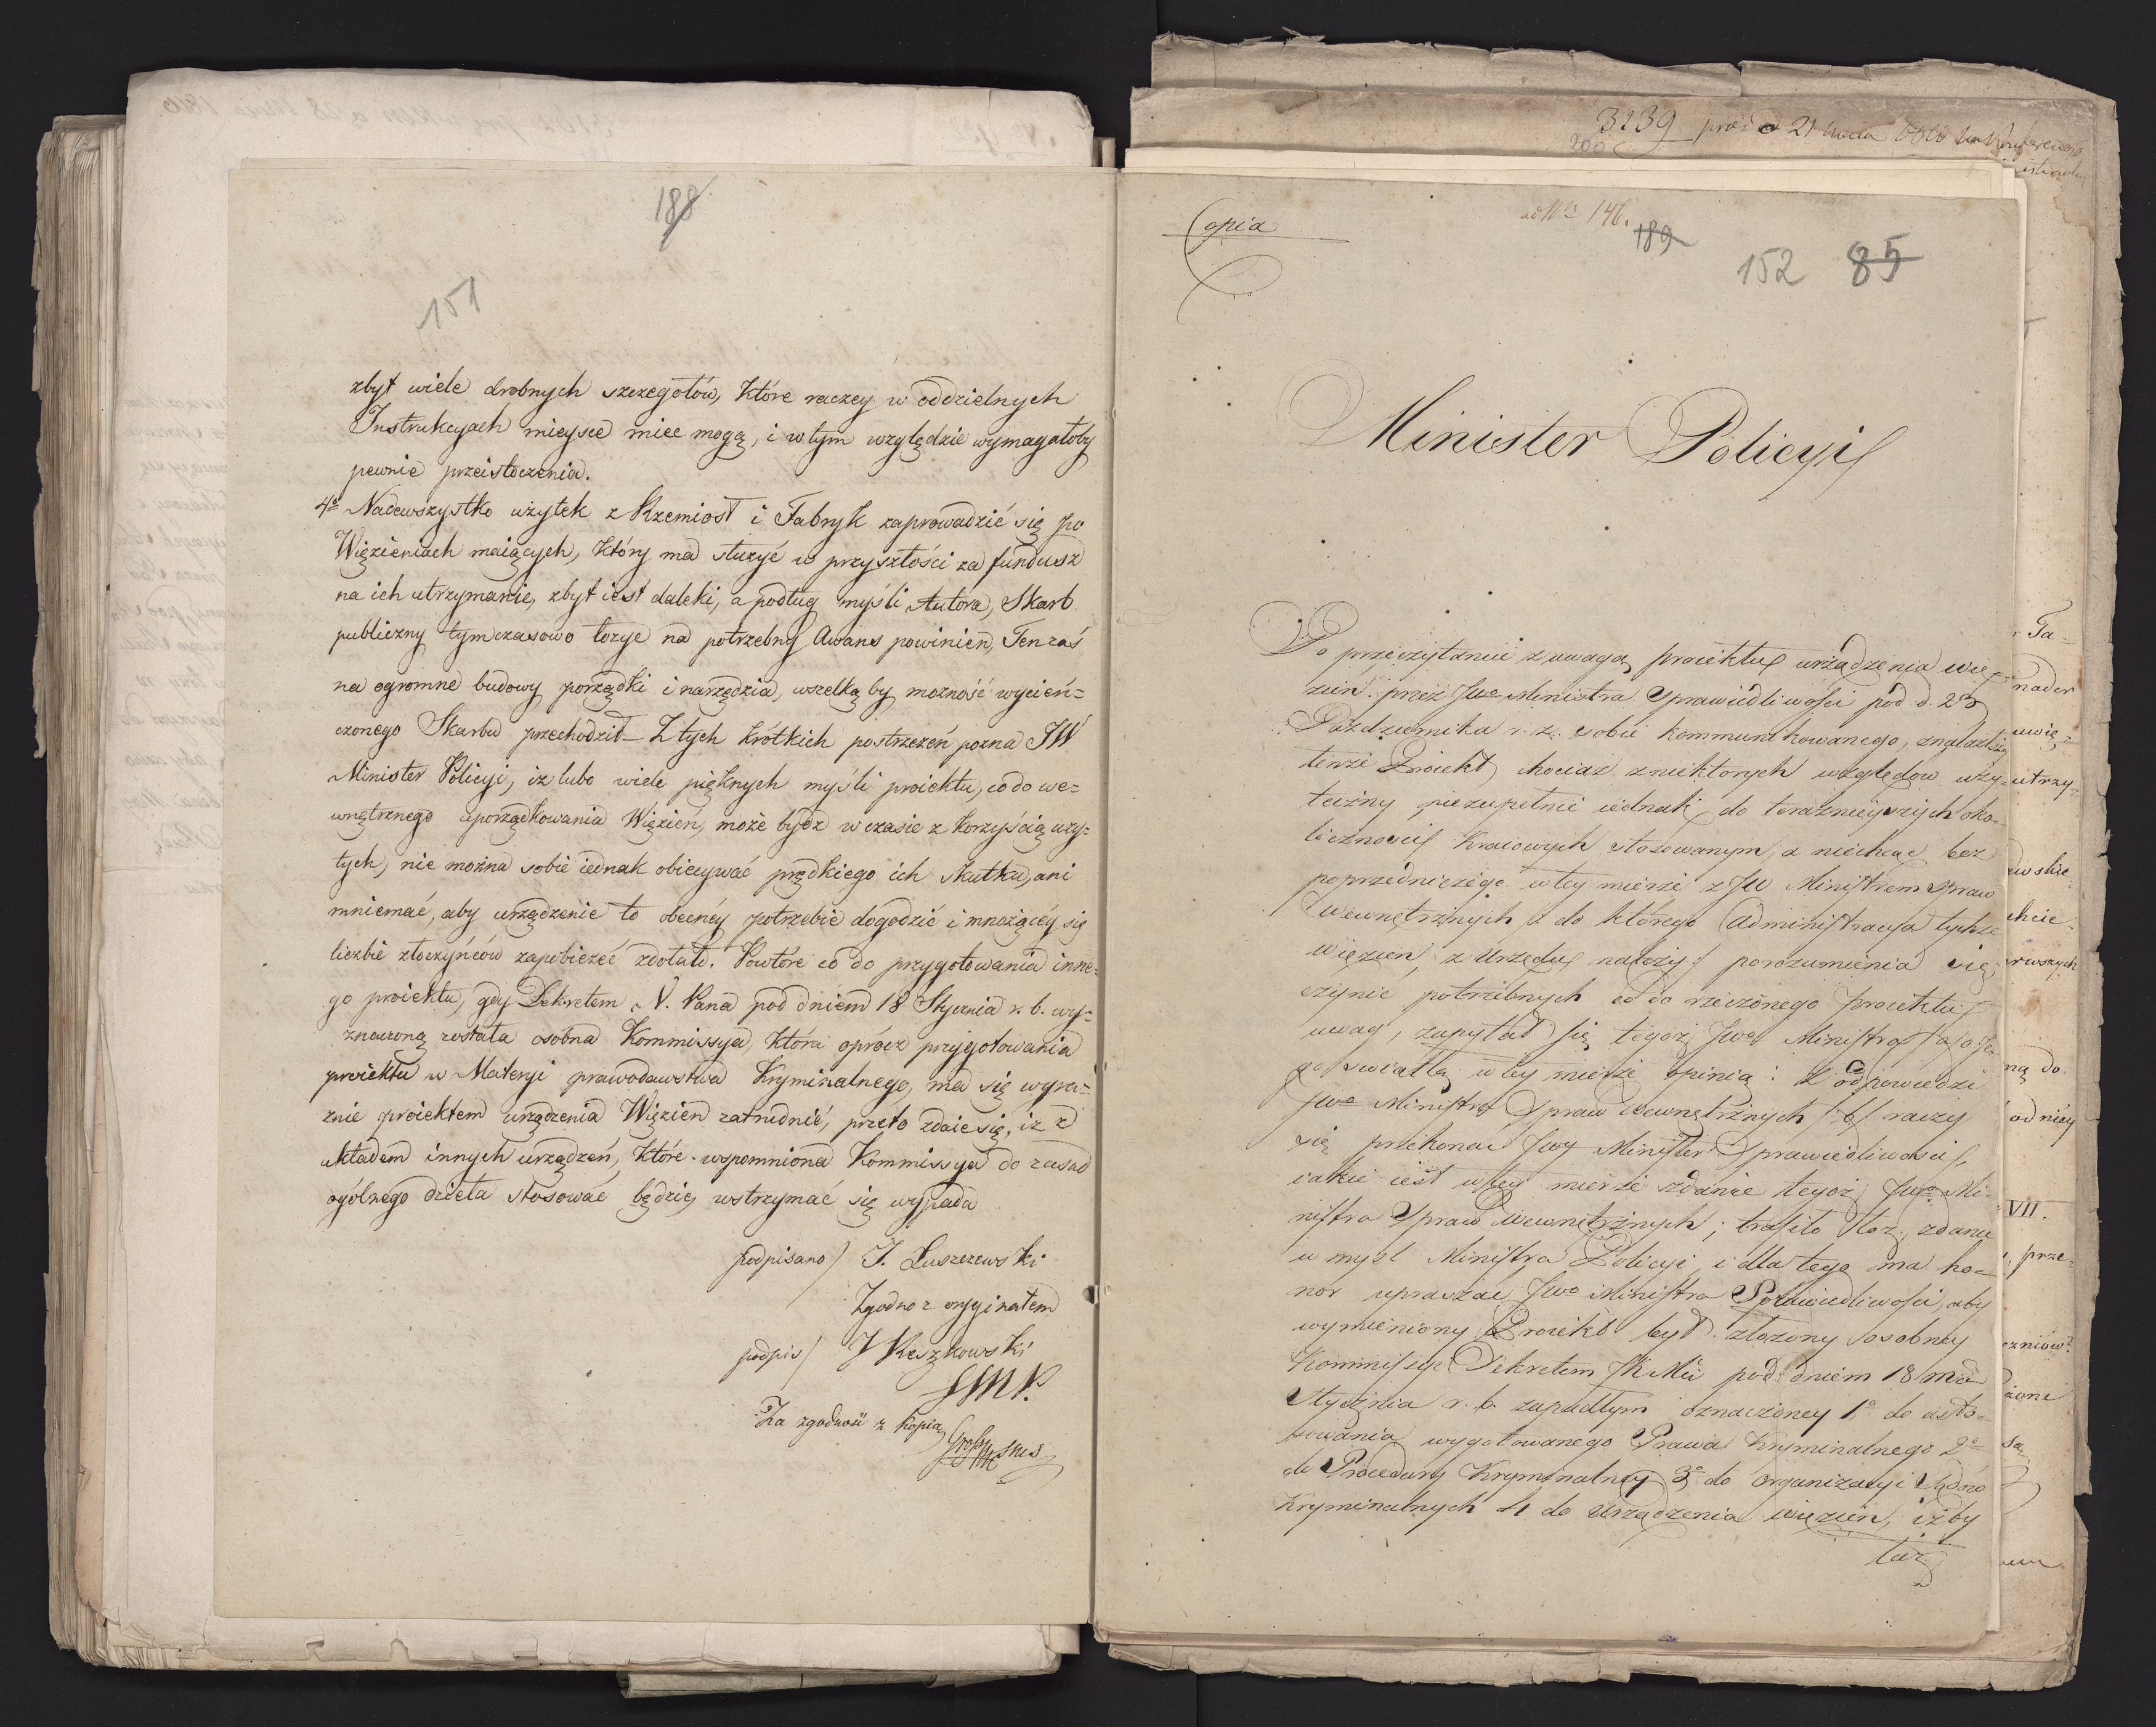 188
151
zbyt wiele drobnych szczegołów, które raczey w oddzielnych
Instrukcyach mieysce miec mogą, i wtym względzie wymagałoby
pewnie przeistoczenia.
4o Nadewszystko użytek z Rzemiosł i Fabryk zaprowadzić się po
Więzieniach maiących, który ma służyć w przyszłości za fundusz
na ich utrzymanie, zbyt iest daleki, a podług myśli Autora, Skarb
publiczny tymczasowo łożyc na potrzebny Awans powinien, Ten zaś
na ogromne budowy porządki i narzędzia, wszelką by możność wycień=
czonego Skarbu przechodził – Z tych krótkich postrzeżeń pozna JW
Minister Policyi, iz lubo wiele pięknych myśli proiektu, co do we=
wnętrznego uporządkowania Więzień, może bydz w czasie z korzyścią uży=
tych, nie można sobie iednak obiecywać prędkiego ich skutku, ani
mniemać, aby urządzenie to obecnéy potrzebie dogodzić i mnożącéy się
liczbie złoczyńców zapobieżéć zdołało. Powtóre co do przygotowania inne=
go proiektu, gdy Dekretem N. Pana pod dniem 18 Stycznia r. b. wy=
znaczoną została osobna Kommissya, która oprócz przygotowania
proiektu w Materyi prawodawstwa Kryminalnego, ma się wyra=
znie proiektem urządzenia Więzien zatrudnić, przeto zdaie się, iż z
układem innych urządzeń, które wspomniona Kommissya do zasad
ogólnego dzieła stosować będzie, wstrzymać się wypada
podpisano) J. Łuszczewski
Zgodno z oryginałem
podpis) J Reszkowski
SMP.
Za zgodność z kopią
3239 21 1810
200
Copia
ad No 146.
189
152 85
Minister Policyi
Po przeczytaniu z uwagą proiektu urządzenia wię=
zień przez JWo Ministra Sprawiedliwości pod d. 23
Października r. z. sobie kommunikowanego, znalazłszy
tenże Proiekt, chociaz z niektorych względow uży=
teczny, niezupełnie iednak do teraznieyszych oko=
licznosci Kraiowych stosowanym, a niechcąc bez
poprzedniczégo w tey mierze z JW Ministrem Spraw
Wewnętrznych do którego Administracya tychże
więzien, z Urzędu należy porozumienia się
czynic potrzebnych co do rzeczonego proiektu
uwag, zapytał się tegoż JWo Ministra /a/ o Je=
go swiatłą w tey mierze opinią: z odpowiedzi
JWo Ministra Spraw Wewnętrznych /b/ raczy
się przekonac JWy Minister Sprawiedliwosci,
iakie iest w tey mierze zdanie tegoż JWo Mi=
nistra Spraw Wewnętrznych; trafiło toż zdanie
w myśl Ministra Policyi, i dla tego ma ho=
nor upraszac JWo Ministra Sprawiedliwości, aby
wymieniony Proiekt był złożony osobney
Kommissyi Dekretem JK Mci pod dniem 18 mca
Stycznia r. b. zapadłym oznaczoney 1o do asto=
sowania wygotowanego Prawa Kryminalnego 2o
do Procedury Kryminalney 3o do organizacyi Sądów
Kryminalnych 4 do Urządzenia więzień, iżby
taż
nader
utrzy=
chcie=
rwszych
ną do
od niéy
VII.
prze=